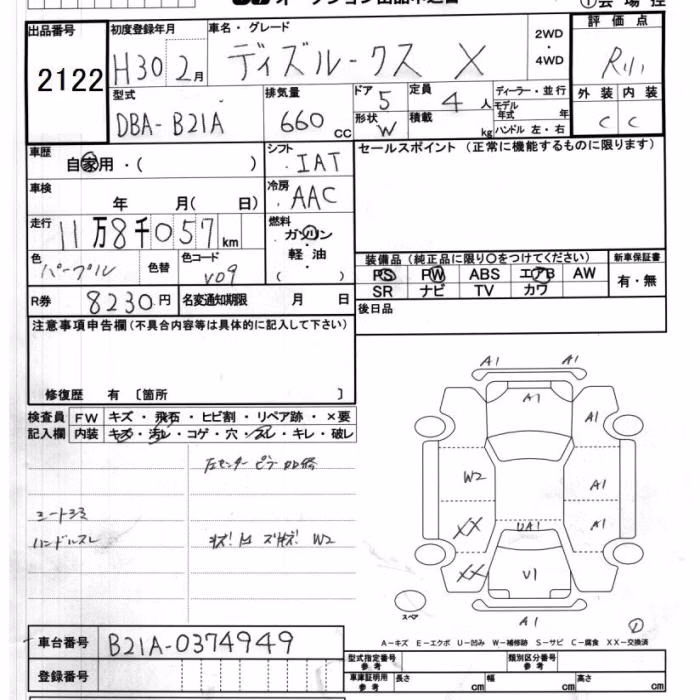 出品番号 初度登録年月 車名・グレード 2WD・4WD 評価点
2122 H30 2月 ディズルークス X R
型式 排気量 ドア 5 定員 4人 ディーラー・並行 外装 内装
DBA-B21A 660cc 形状 W 積載 kg モデル年式 年 C C
ハンドル 左・右
車歴 シフト セールスポイント (正常に機能するものに限ります)
自家用・( ) IAT
車検 冷房
年 月( 日) AAC
走行 燃料
11万8千057km ガソリン
色 色替 色コード 軽油・ 装備品 (純正品に限り○をつけてください) 新車保証書
パープル V09 PS PW ABS エアB AW 有・無
SR ナビ TV カワ
R券 8230円 名変通知期限 月 日 後日品
注意事項申告欄(不具合内容等は具体的に記入して下さい)
修復歴 有 〔箇所 〕
検査員 FW キズ・飛石・ヒビ割・リペア跡・×要
記入欄 内装 キズ・汚レ・コゲ・穴・スレ・キレ・破レ
左センターピラー
ハンドルスレ W2
A1 A1
A1
A1
W2 A1
XX UA1 A1
XX U1
スペア A1
A-キズ E-エクボ U-凹み W-補修跡 S-サビ C-腐食 XX-交換済
車台番号 B21A-0374949
登録番号
型式指定番号 参考 類別区分番号 参考
車庫証明用 参考 長さ cm 幅 cm 高さ cm